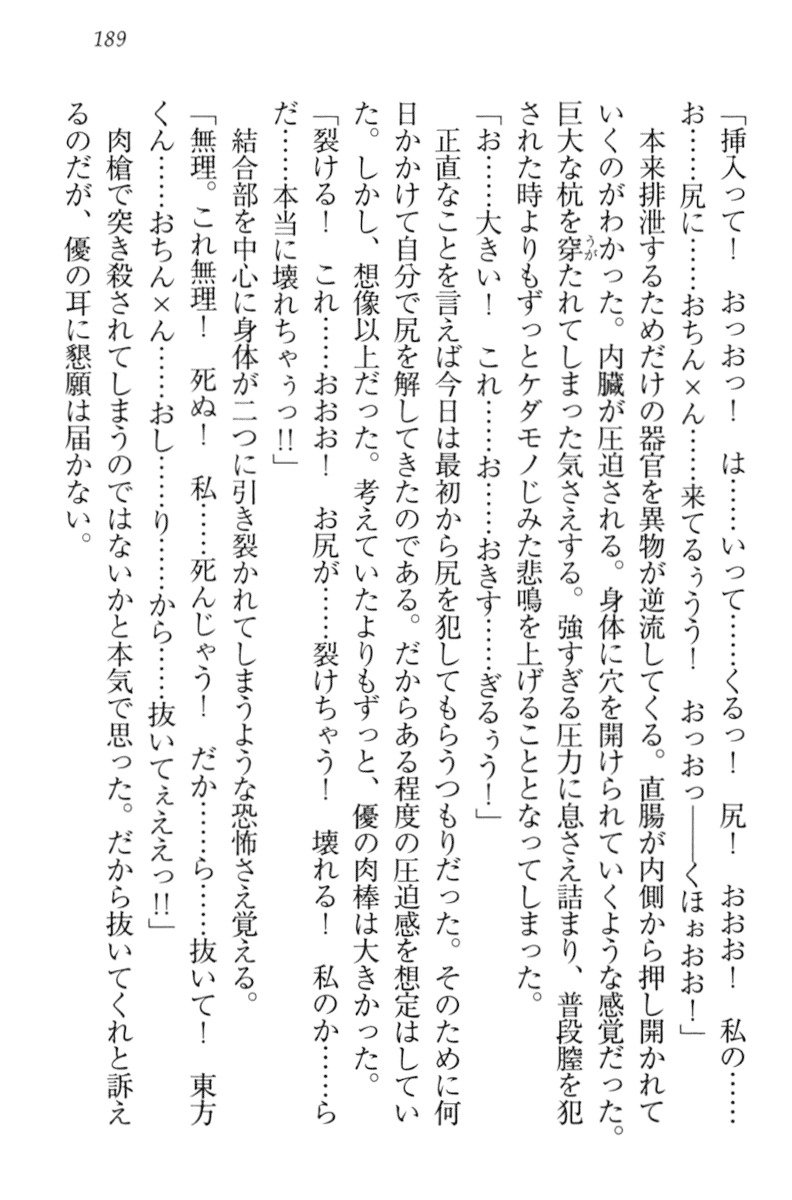 189
「挿入って！　おっおっ！　は……いって……くるっ！　尻！　おおお！　私の……
お……尻に……おちん×ん……来てるぅうう！　おっおっ――くほぉおお！」
　本来排泄するためだけの器官を異物が逆流してくる。直腸が内側から押し開かれて
いくのがわかった。内臓が圧迫される。身体に穴を開けられていくような感覚だった。
巨大な杭を穿うがたれてしまった気さえする。強すぎる圧力に息さえ詰まり、普段膣を犯
された時よりもずっとケダモノじみた悲鳴を上げることとなってしまった。
「お……大きい！　これ……お……おきす……ぎるぅう！」
　正直なことを言えば今日は最初から尻を犯してもらうつもりだった。そのために何
日かかけて自分で尻を解してきたのである。だからある程度の圧迫感を想定はしてい
た。しかし、想像以上だった。考えていたよりもずっと、優の肉棒は大きかった。
「裂ける！　これ……おおお！　お尻が……裂けちゃう！　壊れる！　私のか……ら
だ……本当に壊れちゃぅっ!!」
　結合部を中心に身体が二つに引き裂かれてしまうような恐怖さえ覚える。
「無理。これ無理！　死ぬ！　私……死んじゃう！　だか……ら……抜いて！　東方
くん……おちん×ん……おし……り……から……抜いてぇええっ!!」
　肉槍で突き殺されてしまうのではないかと本気で思った。だから抜いてくれと訴え
るのだが、優の耳に懇願は届かない。